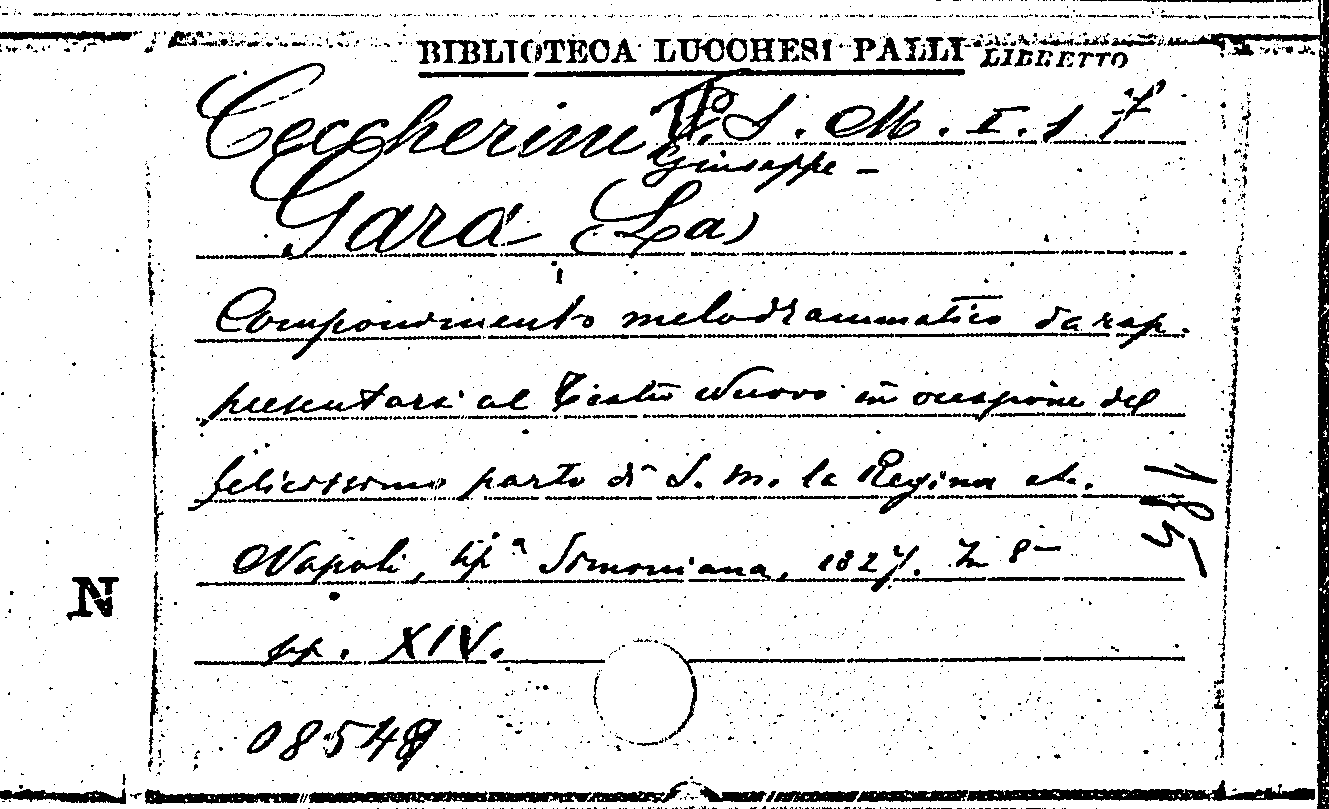 BIBLIOTECA LUCCHESI PALLI LIBRETTO
Ceccherini S. M. I. 1 7
Giuseppe –
Gara (La)
Componimento melodrammatico da rap.
presentarsi al Teatro Nuovo in occasione del
felicissimo parto di S. M. la Regina etc.
Napoli, tipª Simoniana, 1827. In 8–
pp. XIV.
N
08548